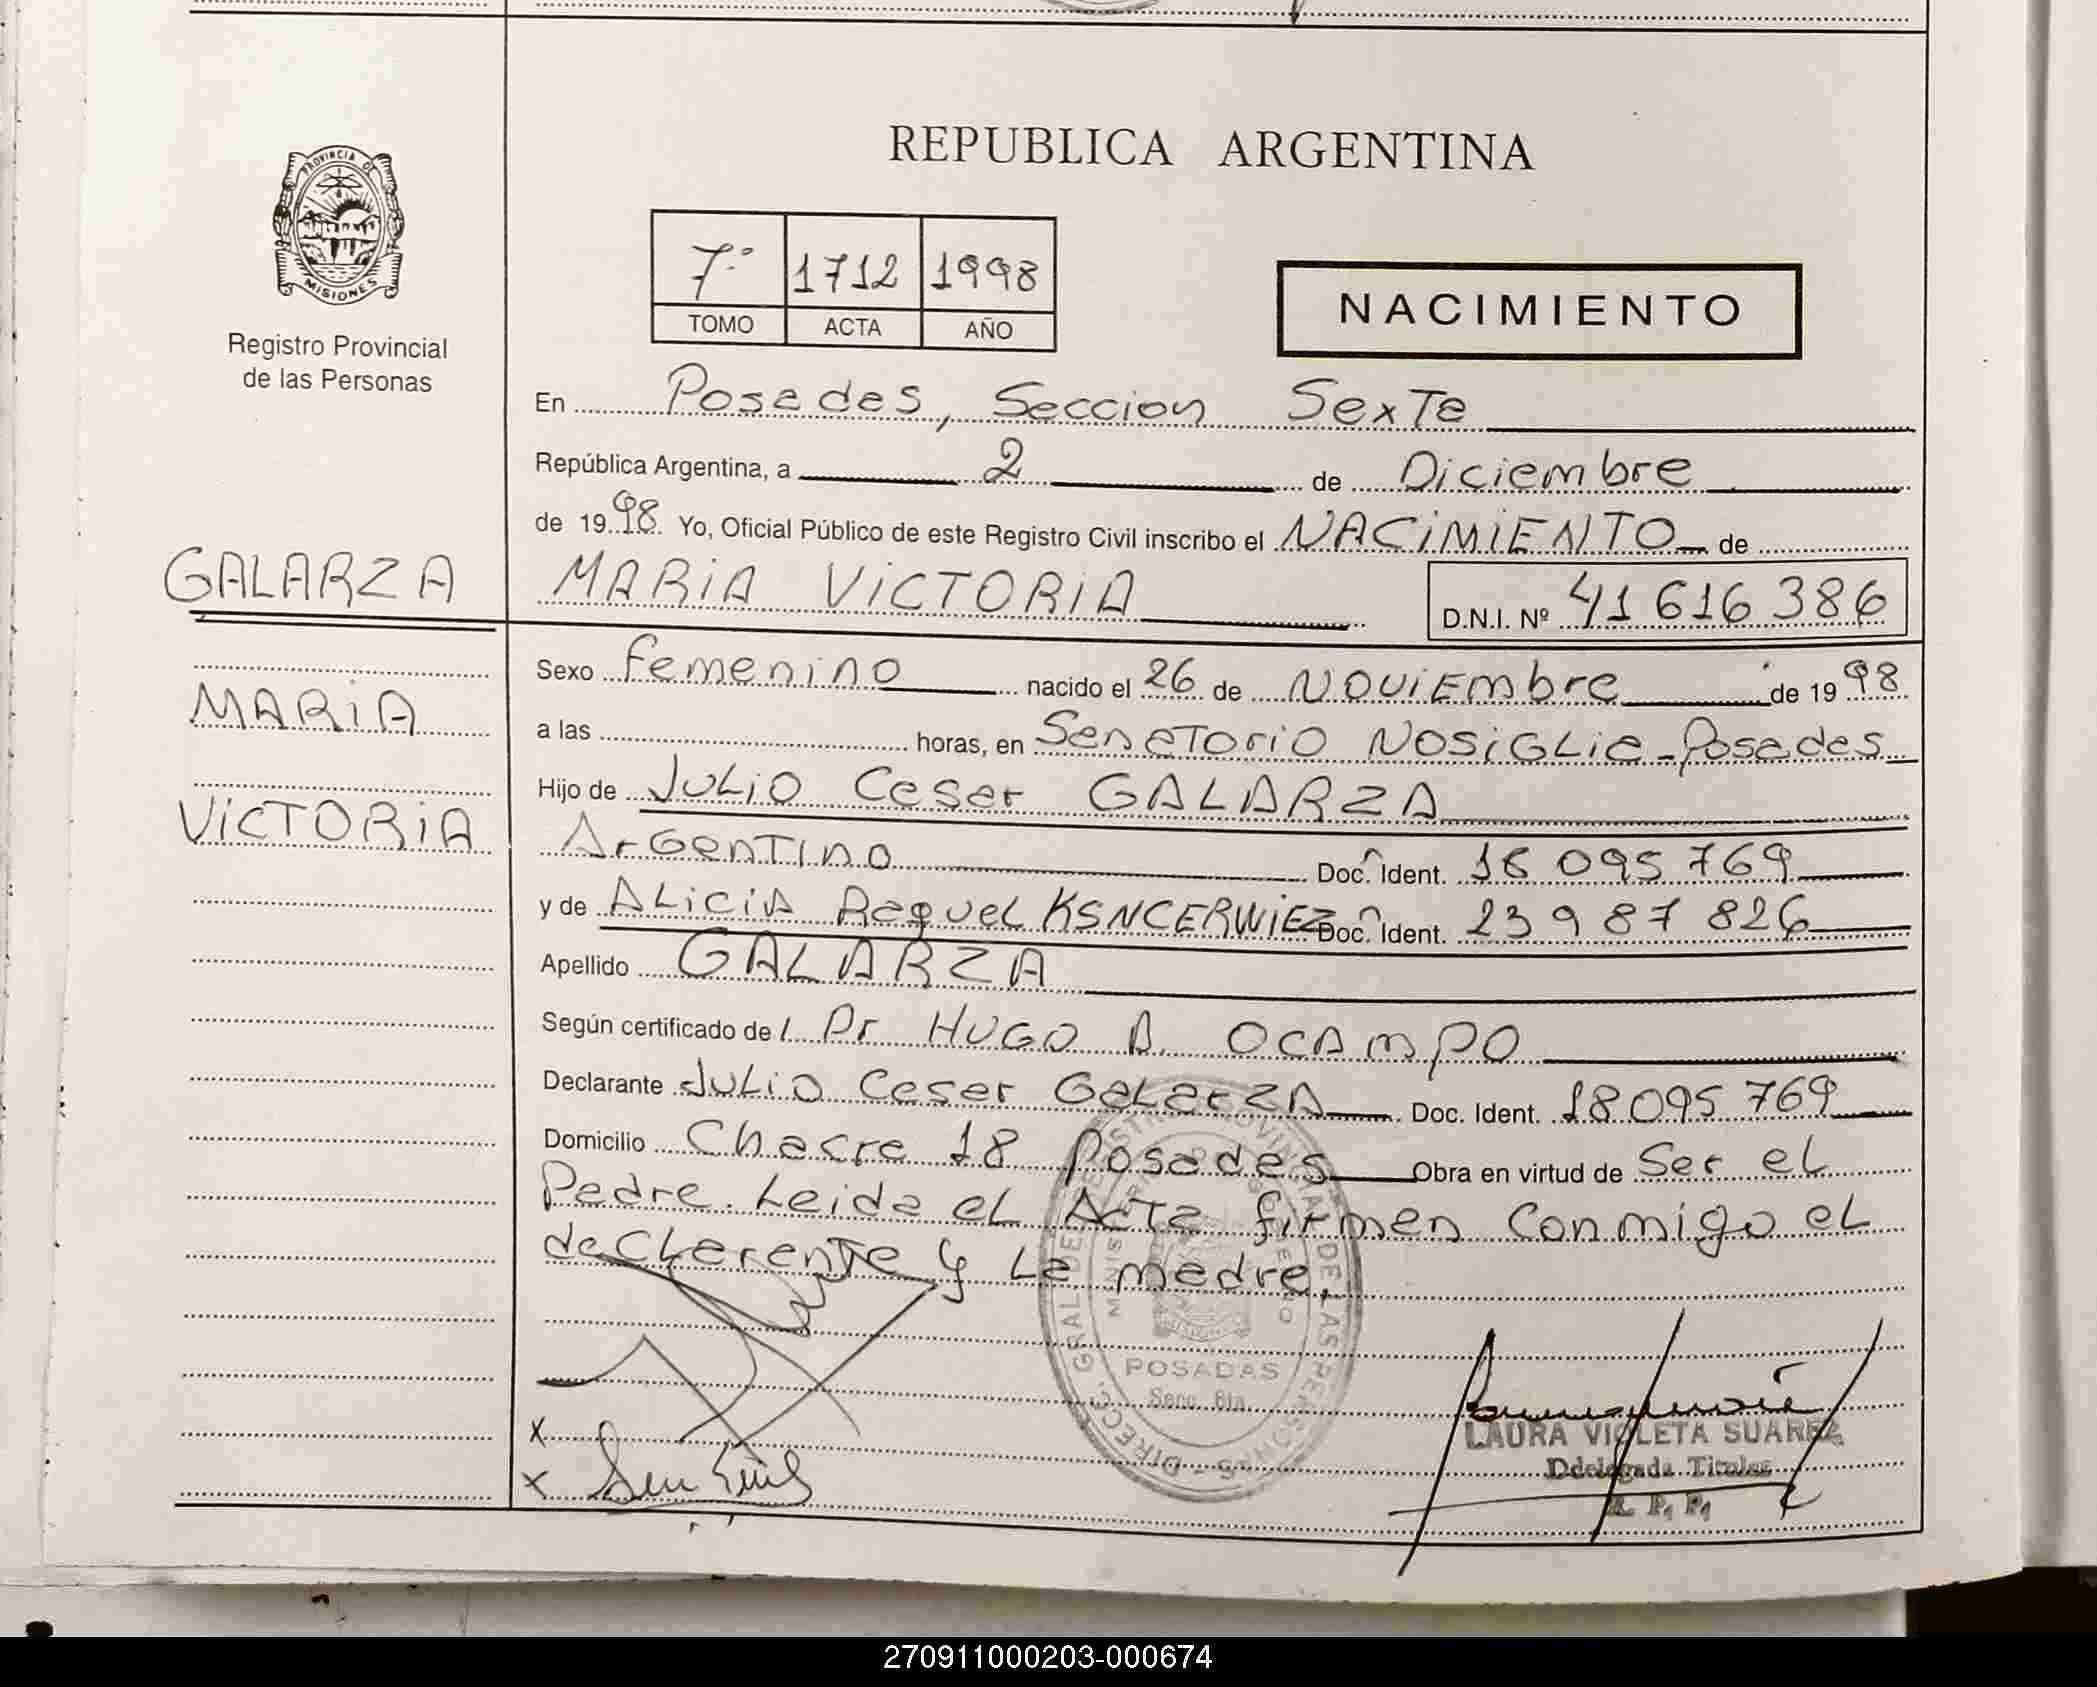 PROVINCIA DE
MISIONES
Registro Provincial
de las Personas
REPUBLICA ARGENTINA
7º 1712 1998
TOMO ACTA AÑO
NACIMIENTO
En Posadas, Seccion Sexta
República Argentina, a 2 de Diciembre
de 1998 Yo, Oficial Público de este Registro Civil inscribo el NACIMIENTO de
GALARZA
MARIA VICTORIA D.N.I. Nº 41 616 386
MARIA
VICTORIA
Sexo femenino nacido el 26 de NOViEmbre de 1998
a las horas, en Sanatorio NOSiGLia - Posadas
Hijo de JULiO Cesar GALARZA
ArGenTino Doc. Ident. 18 095 769
y de ALiciA Raquel KSNCERWiEZ Doc. Ident. 23 987 826
Apellido GALARZA
Según certificado de l Dr HUGO A. OCAMPO
Declarante JULiO Cesar GaLarZA Doc. Ident. 18 095 769
Domicilio Chacra 18 Posadas Obra en virtud de Ser el
Padre. Leida el Acta firman conmigo el
declarante y La madre
POSADAS
Secc. 6ta
X
X
LAURA VIOLETA SUAREZ
Ddelegada Titular
R. P. P.
270911000203-000674